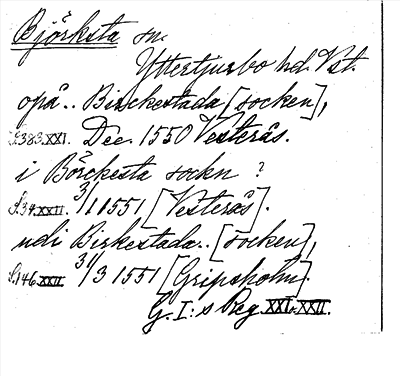 Björksta sn.
Yttertjurbo hd. Vst.
opå.. Birckestada [socken],
S.383.XXI. Dec. 1550 Vesterås.
i Börckesta sockn ?
S.34.XXII. 3/1 1551 [Vesterås].
udi Birkestada.. [socken],
S.146.XXII. 31/3 1551 [Gripsholm].
G. I:s Reg. XXI, XXII.